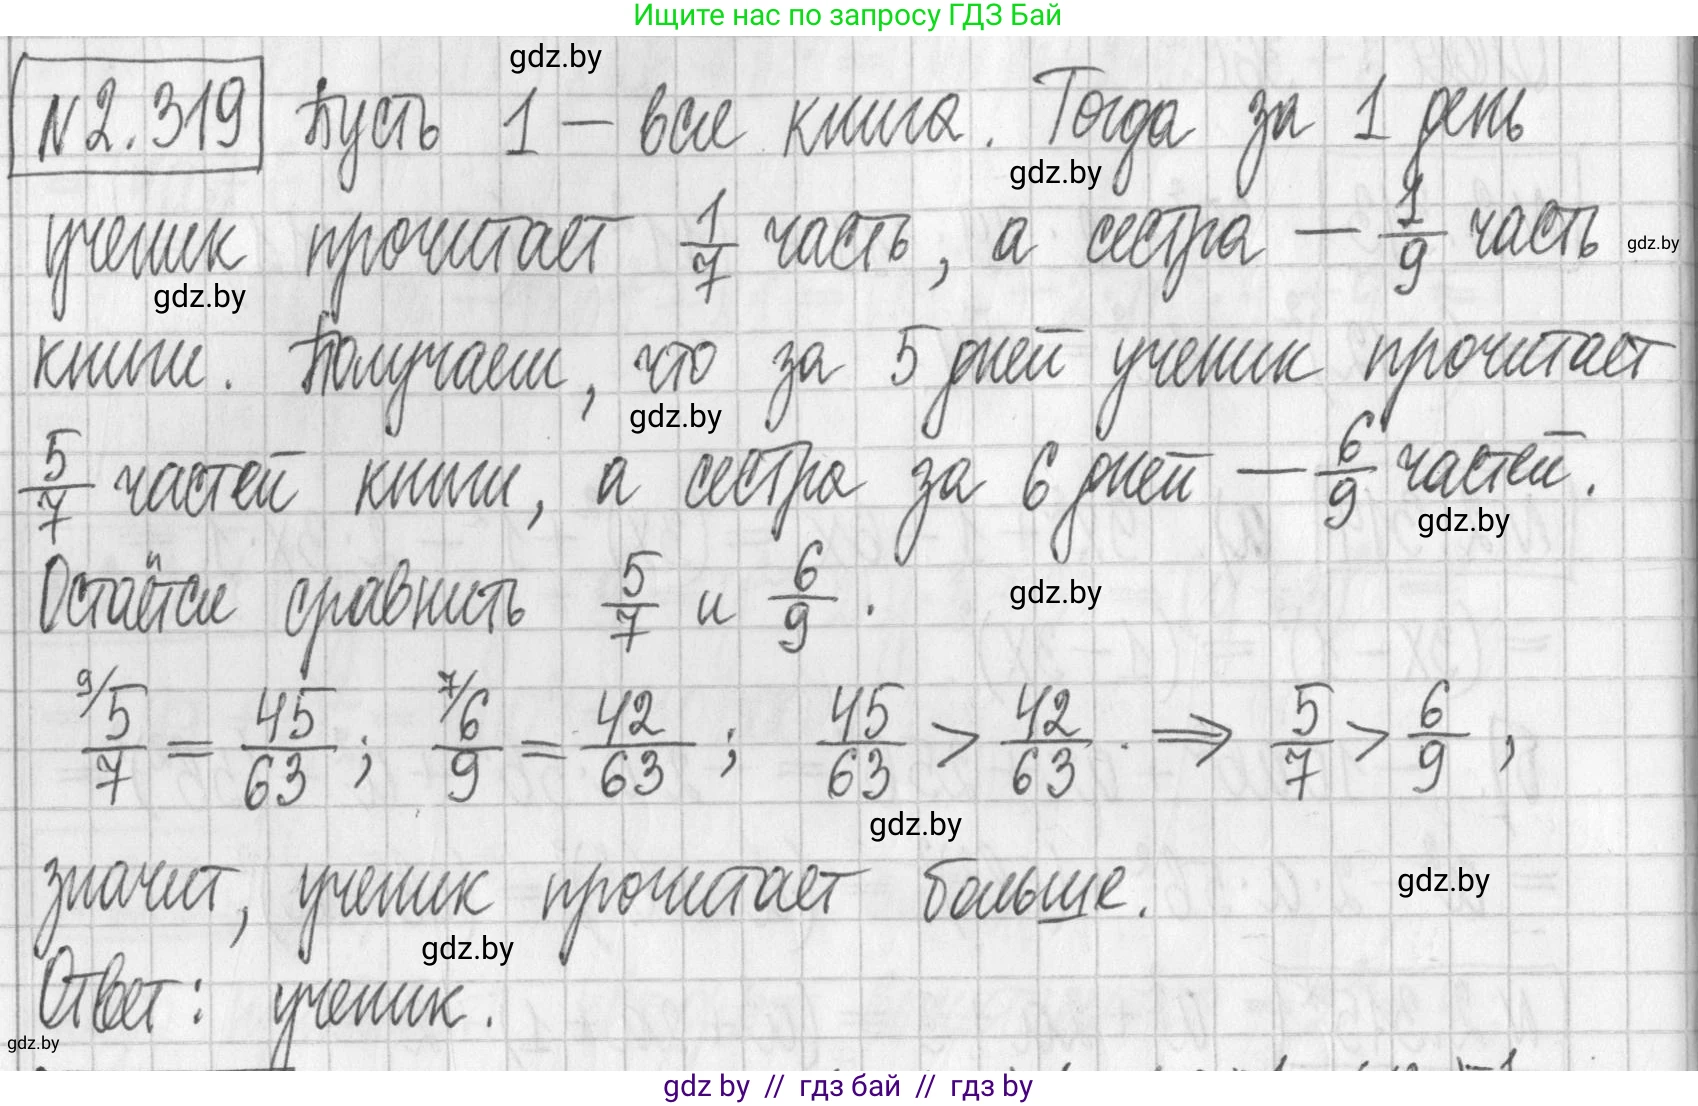 Ищите нас по запросу ГДЗ Бай
gdz.by
№2.319 Пусть 1 — вся книга. Тогда за 1 день
gdz.by
ученик прочитает 1/7 часть, а сестра — 1/9 часть
gdz.by
gdz.by
книги. Получаем, что за 5 дней ученик прочитает
gdz.by
5/7 частей книги, а сестра за 6 дней — 6/9 частей.
gdz.by
Остаётся сравнить 5/7 и 6/9.
gdz.by
9/ 5/7 = 45/63; 7/ 6/9 = 42/63; 45/63 > 42/63. ⇒ 5/7 > 6/9,
gdz.by
значит, ученик прочитает больше.
gdz.by
gdz.by
Ответ: ученик.
gdz.by
gdz by // гдз бай // гдз by